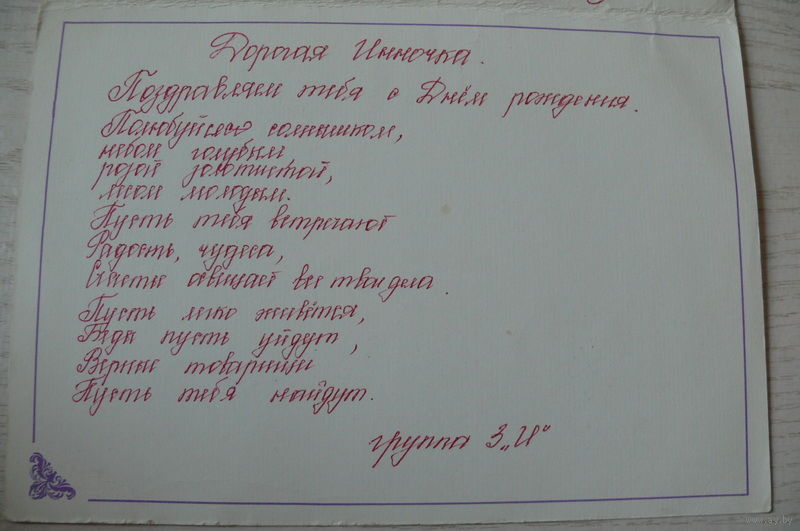 Дорогая Инночка.
Поздравляем тебя с Днём рождения.
Полюбуйся солнышком,
небом голубым,
розой золотистой,
лесом молодым.
Пусть тебя встречают
Радость, чудеса,
Счастье освещает все твои дела.
Пусть легко живётся,
Беды пусть уйдут,
Верные товарищи
Пусть тебя найдут.
группа 3 „И"
www.ay.by